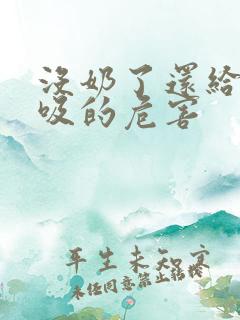 沒奶了還給
吸的危害
年生未知寓
未经同意禁止转载